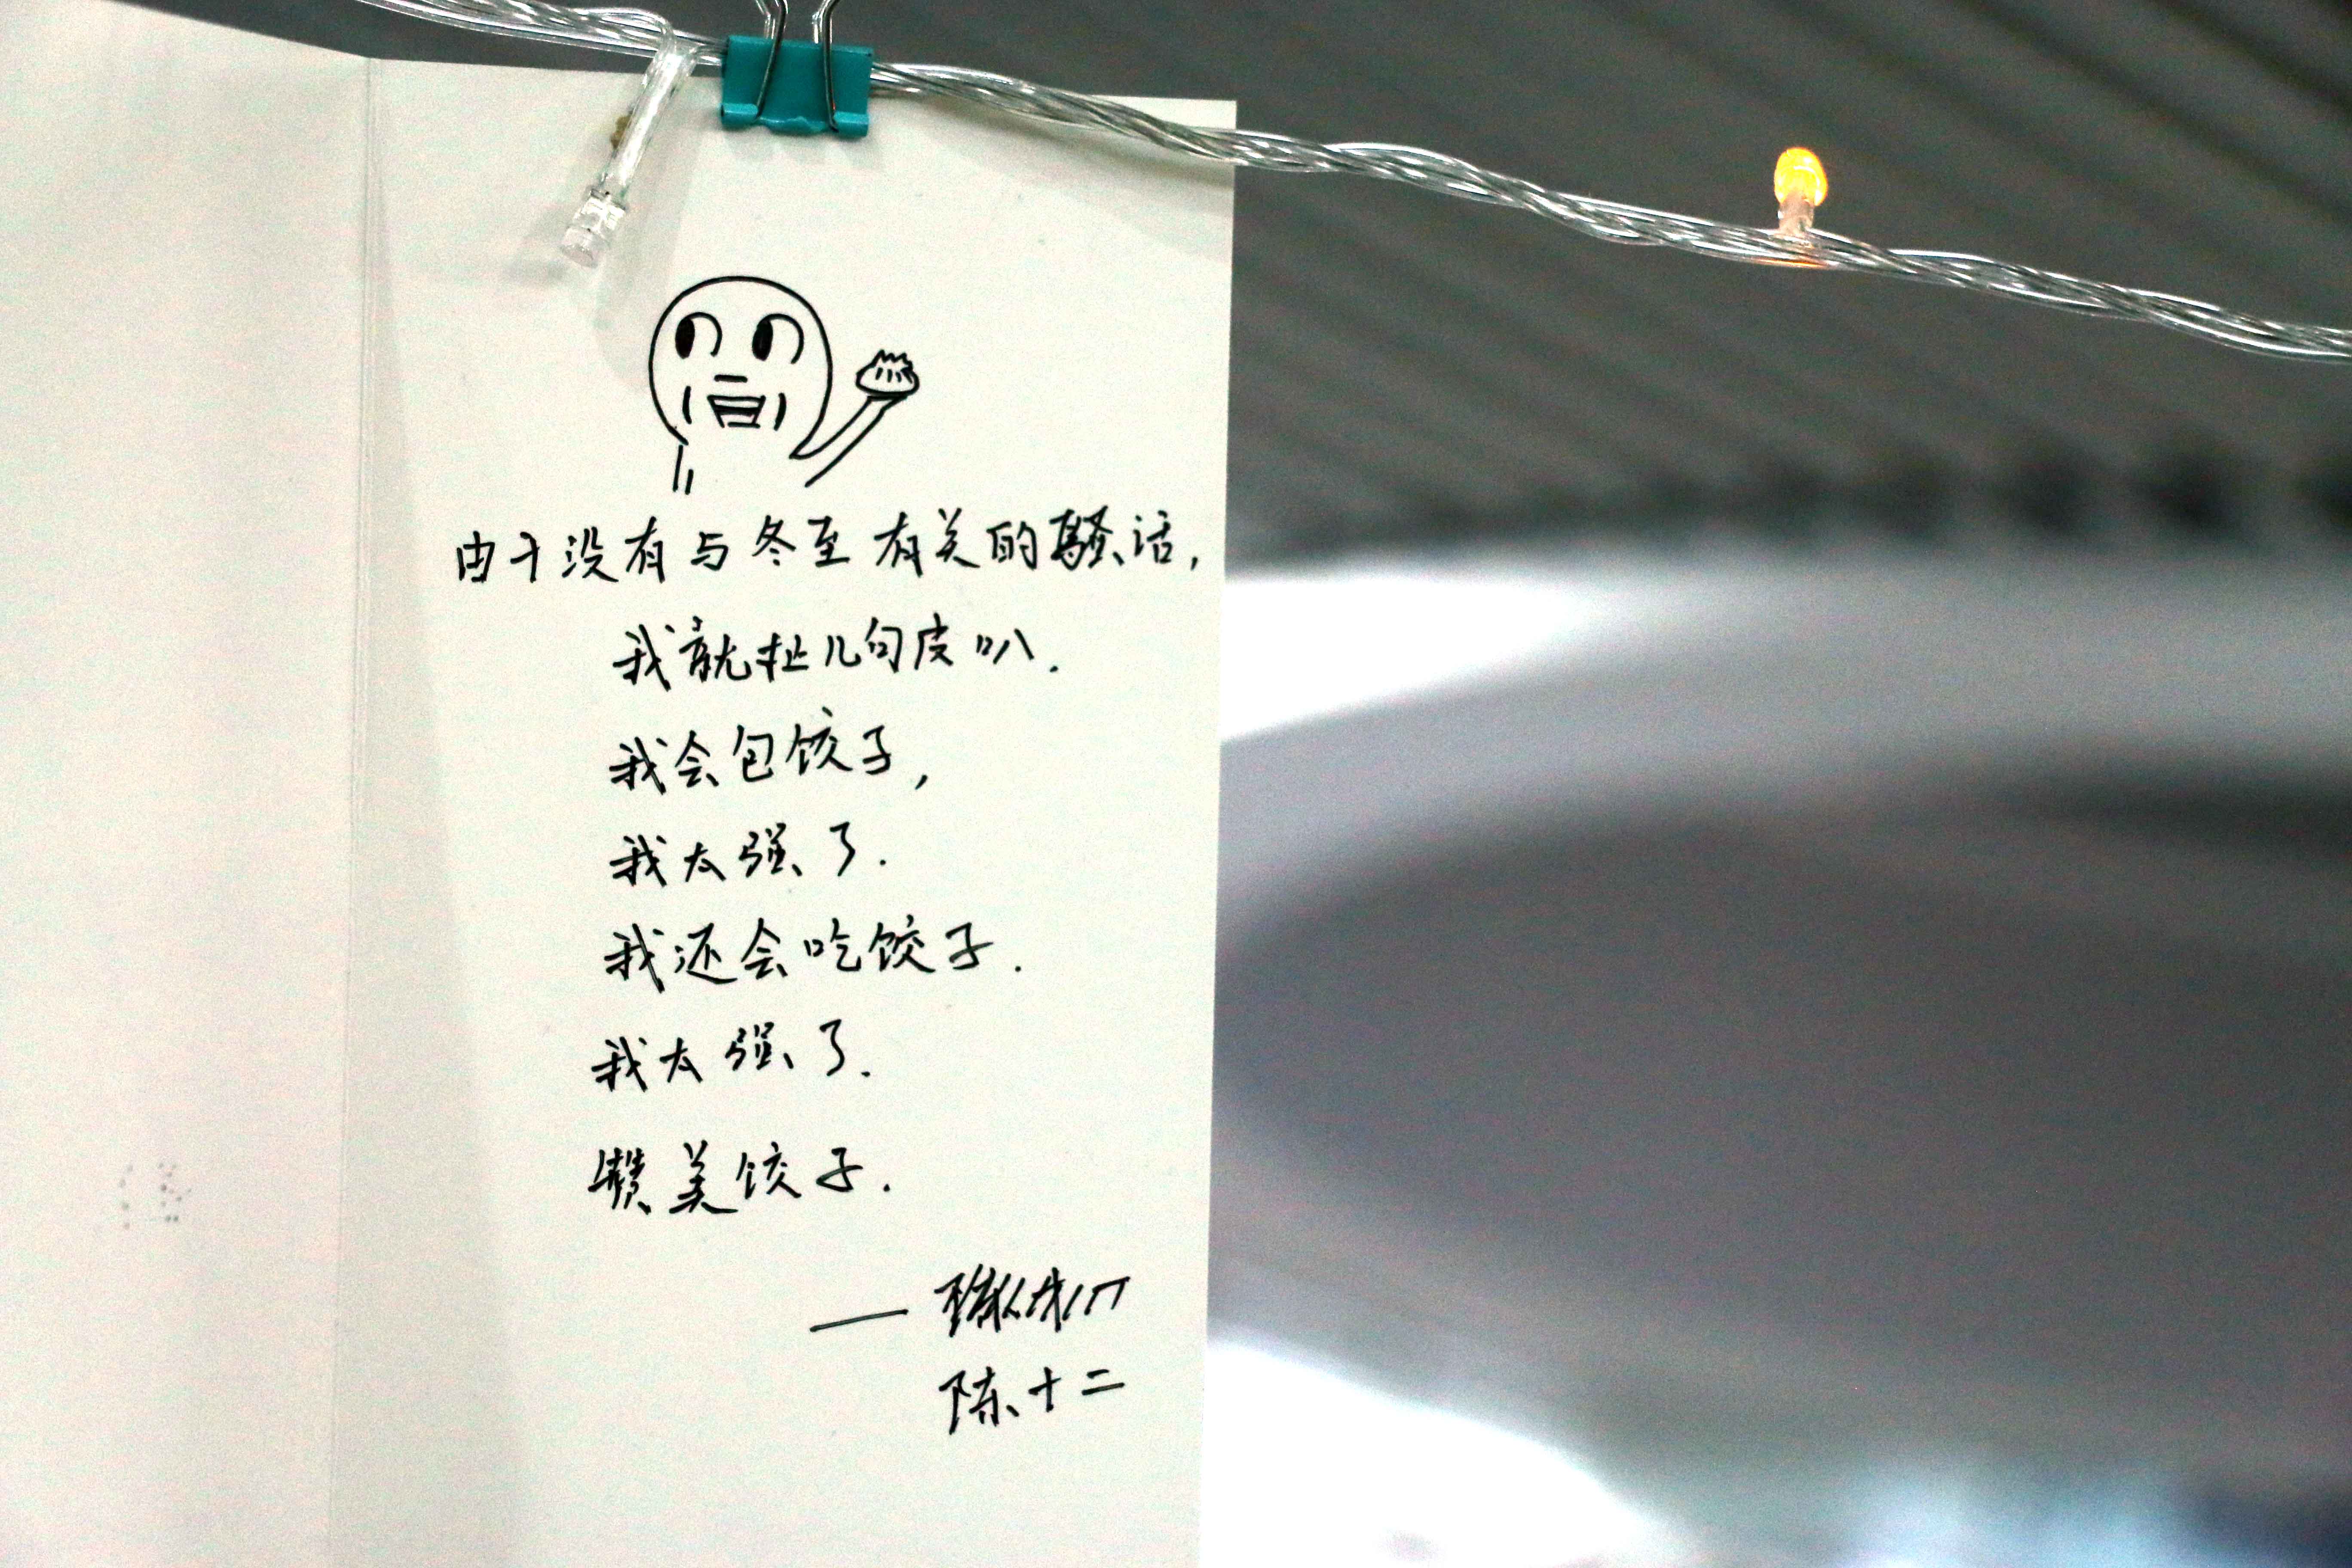 由于没有与冬至有关的骚话,
我就扯几句皮叭.
我会包饺子,
我太强了.
我还会吃饺子.
我太强了.
赞美饺子.
陈十二